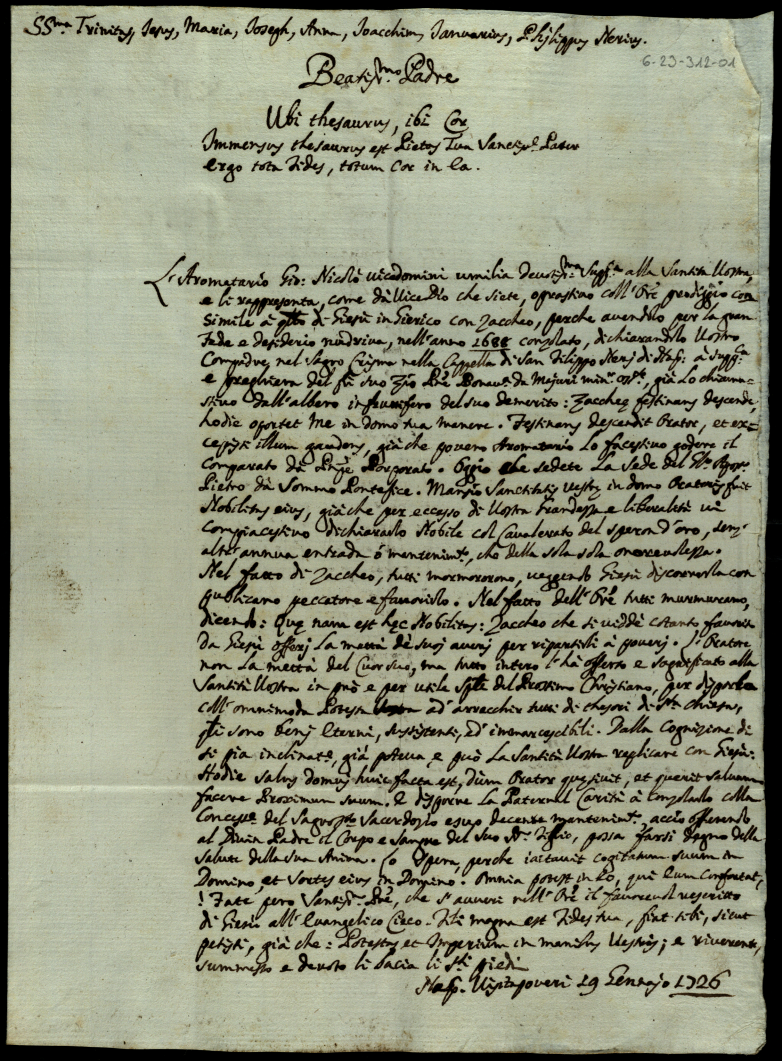 SS.ma Trinitas, Iesus, Maria, Joseph, Anna, Joacchim, Ianuarius, Philippus Nerius.
6-23-312-01
Beatis.mo Padre
Ubi thesaurus, ibi Cor
Immensus thesaurus est Pietas Tua Sanctis.e Pater
ergo tota Fides, totum Cor in ea.
L'Aromatario Gio: Nicolò Vicedomini umilia devotis.ma Supp.ca alla Santità Vostra,
e li rappresenta, come dà Vice Dio che siete, opraste coll'Ore prodiggio con
Simile à qllo di Giesù in Gierico con Zaccheo, perche avendolo per la gran
Fede e desiderio nudriva, nell'anno 1688 consolato, dichiarandolo Vostro
Compadre, nel Sagro Crisma nella Cappella di San Filippo Neri di à Supp.ca
e preghiera del fù suo Zio Pre Bonav.a da Majuri min: già Lo chiama-
stivo dall'albero infruttifero del suo demerito: Zaccheę festinans descende,
hodie oportet me in domo tua manere. Festinans descendit Orator, et ex-
cepisti illum gaudens, già che povero Aromatario Lo facestivo godere il
Comparato dà Porporato. Oggi che sedete La Sede del
Pietro dà Sommo Pontefice. Mansio Sanctitatis vestrę in domo Oratoris fuit
Nobilitas eius, già che per eccesso di Vostra Grandezza e liberalità vi
compiacestivo dichiararlo Nobile col Cavalerato del speron d'oro, senz'
altr'annua entrada ò mantenim.to, che della sola sola onorevolezza.
Nel fatto di Zaccheo, tutti mormororono, veggendo Giesù discorrerla con
publicano peccatore e favorirlo. Nel fatto dell'Ore tutti murmurano,
dicendo: Quę nam est hęc Nobilitas: Zaccheo che si viddè cotanto favorito
da Giesù offerj La mettà dè suoj averj per ripartirli à poverj. L'Oratore
non La mettà del Cuor suo, ma tutto intero l'hà offerto e sagrificato alla
Santità Vostra in prò e per utile del Prossimo Christiano, per disporla
coll'omnimoda Potestà ad'arrecchir tutti di thesori di S.ta Chiesa,
sono benj Eterni, sussistenti, ed'immarcescibili. Dalla Cognizione di
sì pia già poteva, e può La Santità Vostra replicare con Giesù:
Hodie salus domui huic facta est, dum Orator quęsivit, et querit salvum
facere Proximum suum. E disporne La Paternal Carità à consolarlo colla
Concess.e del Sagros.to Sacerdozio e suo decente mantenim.to, acciò offerendo
al Divin Padre il Corpo e Sangue del Suo Figlio, possa farsi degno della
Salute della sua Anima. Lo Spera, perche iactavit cogitatum suum in
Domino, et Sortes eius in Domino. Omnia potest in Eo, qui Eum confortat,
! Fate però Santis.o Pre, che s'avveri nell'Ore il favorevol rescritto
di Giesù all'Evangelico Cieco. Fili magna est Fides tua, fiat tibi, sicut
petisti, già che: Potestas et Imperium in manibus Vestris; e riverente,
summesso e devoto li bacia li S.ti piedi
Nap. Visitapoveri 19 Gennajo 1726